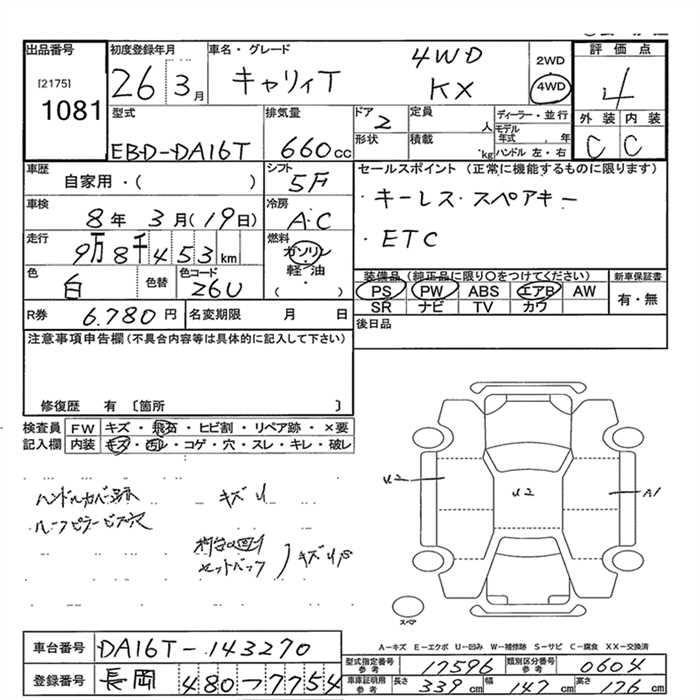 出品番号 初度登録年月 車名・グレード 評価点
[2175]
1081
26 3月 キャリイT 4WD KX 2WD 4WD 4
外装 内装
C C
型式 排気量 ドア 定員 ディーラー・並行
EBD-DA16T 660cc 2 人 モデル年式 年
形状 積載 kg ハンドル 左・右
車歴 シフト セールスポイント (正常に機能するものに限ります)
自家用・( ) 5F
・キーレス・スペアキー
車検 冷房
8年 3月(19日) A.C
・ETC
走行 燃料
9万8千453km ガソリン
軽・油
( )
色 色替 色コード
白 26U
装備品(純正品に限り○をつけてください) 新車保証書
PS PW ABS エアB AW 有・無
SR ナビ TV カワ
R券 6.780円 名変期限 月 日
後日品
注意事項申告欄(不具合内容等は具体的に記入して下さい)
修復歴 有 〔箇所 〕
検査員 FW キズ・飛石・ヒビ割・リペア跡・×要
記入欄 内装 キズ・汚レ・コゲ・穴・スレ・キレ・破レ
ハンドルカバー跡 キズU
ルーフピラービス穴
荷台凹キ
セットバック キズUS
U2 U2 A1
スペア
A-キズ E-エクボ U-凹み W-補修跡 S-サビ C-腐食 XX-交換済
車台番号 DA16T-143270
型式指定番号 参考 17596 類別区分番号 参考 0604
登録番号 長岡 480 7754
車庫証明用 参考 長さ 339cm 幅 147cm 高さ 176cm